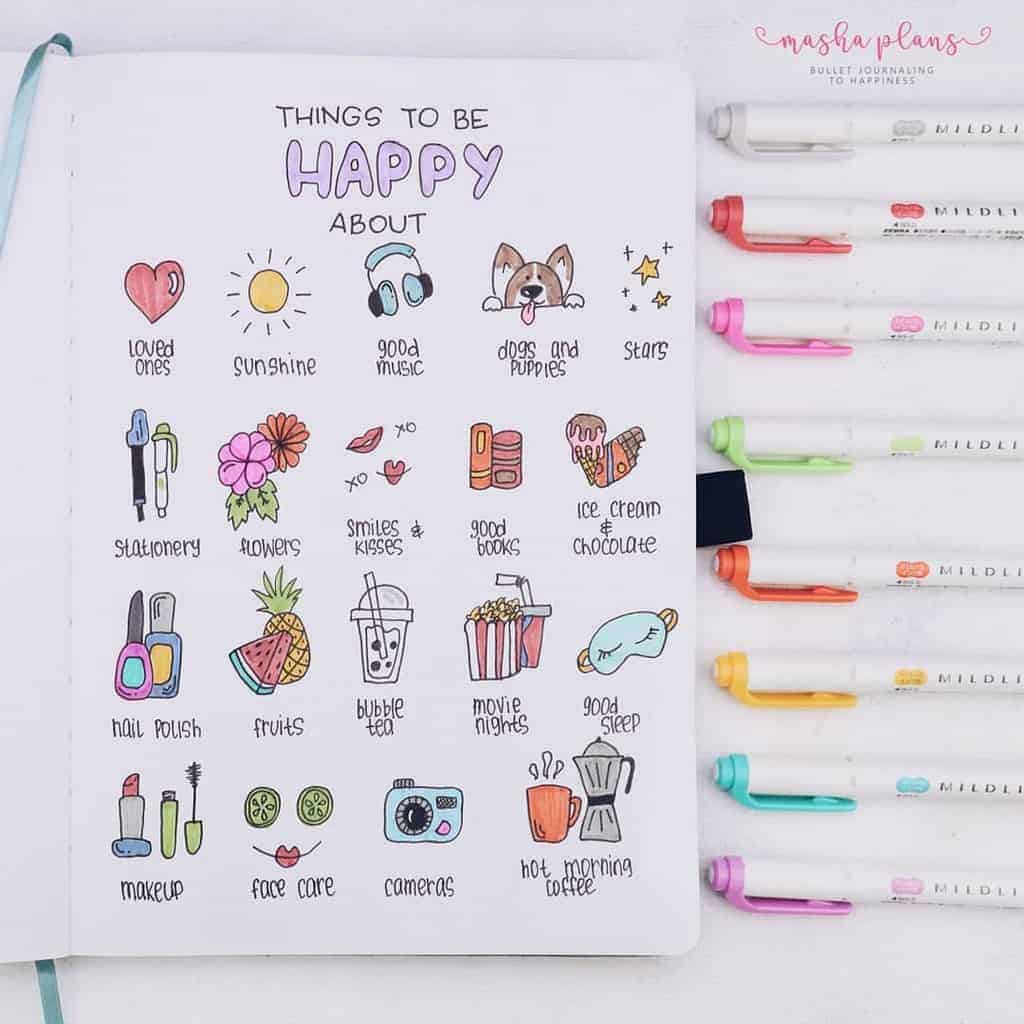 masha plans
BULLET JOURNALING
TO HAPPINESS
THINGS TO BE
HAPPY
ABOUT
loved
ones
sunshine
good
music
dogs and
puppies
stars
stationery
flowers
XO
XO
smiles &
kisses
good
books
ice cream
&
chocolate
nail polish
fruits
bubble
tea
movie
nights
good
sleep
makeup
face care
cameras
hot morning
coffee
MILDLI
MILDLI
ZEBRA
MILDLI
MILDLI
MILDLI
MILDLI
MILDLI
MILDLI